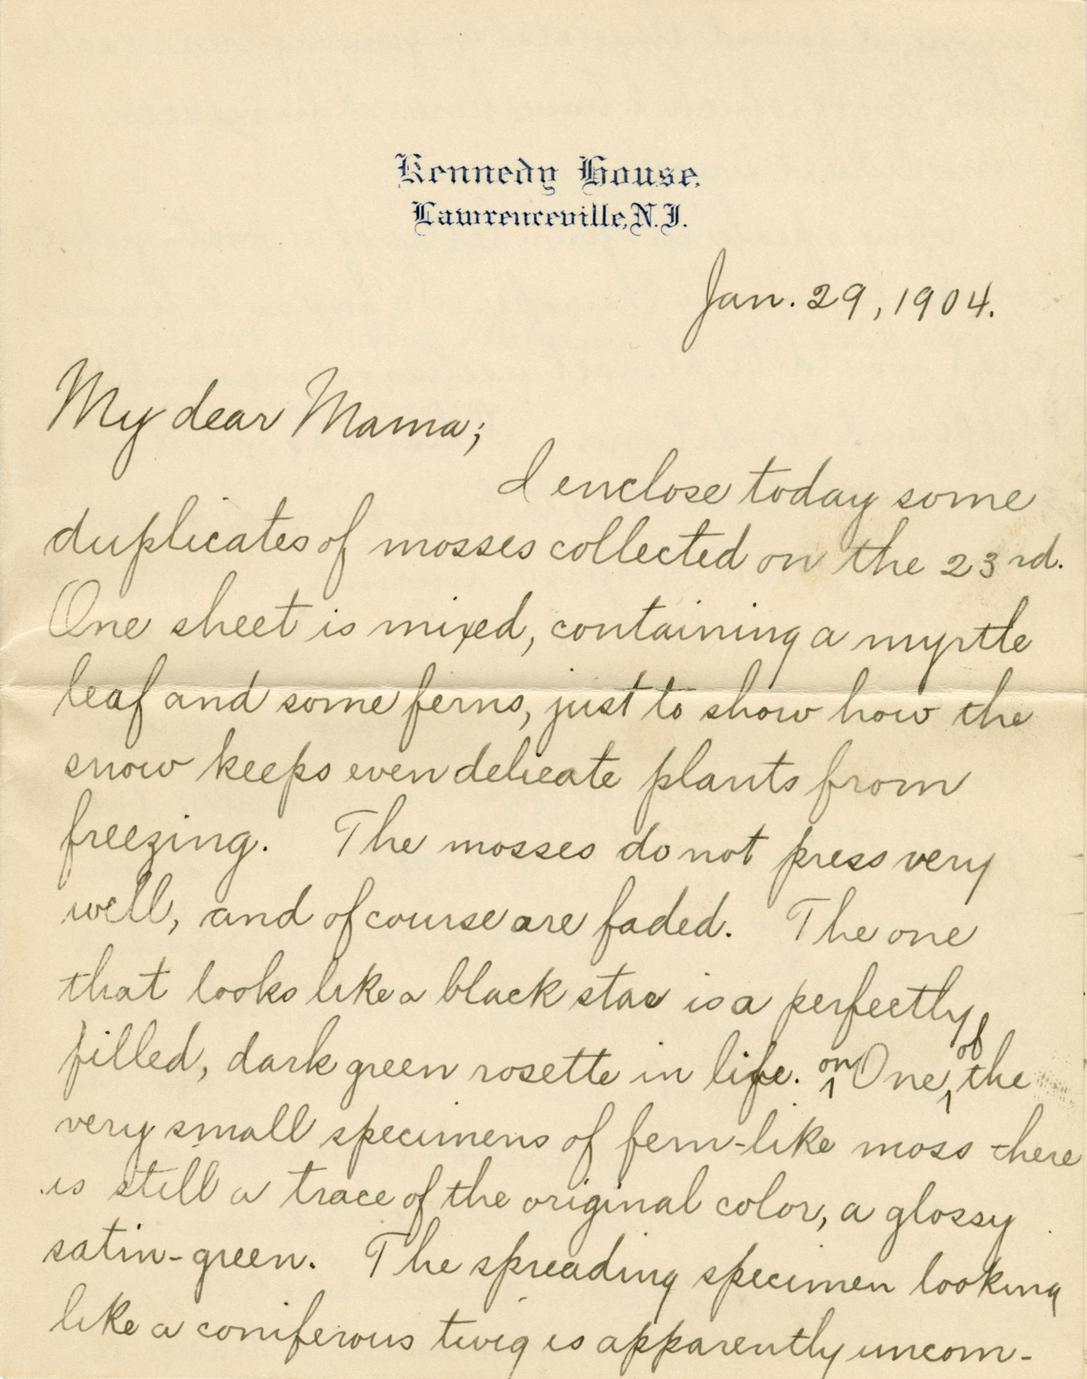 Kennedy House,
Lawrenceville, N.J.
Jan. 29, 1904.
My dear Mama;
I enclose today some
duplicates of mosses collected on the 23rd.
One sheet is mixed, containing a myrtle
leaf and some ferns, just to show how the
snow keeps even delicate plants from
freezing. The mosses do not press very
well, and of course are faded. The one
that looks like a black star is a perfectly
filled, dark green rosette in life. on One of the
very small specimens of fern-like moss there
is still a trace of the original color, a glossy
satin-green. The spreading specimen looking
like a coniferous twig is apparently uncom-